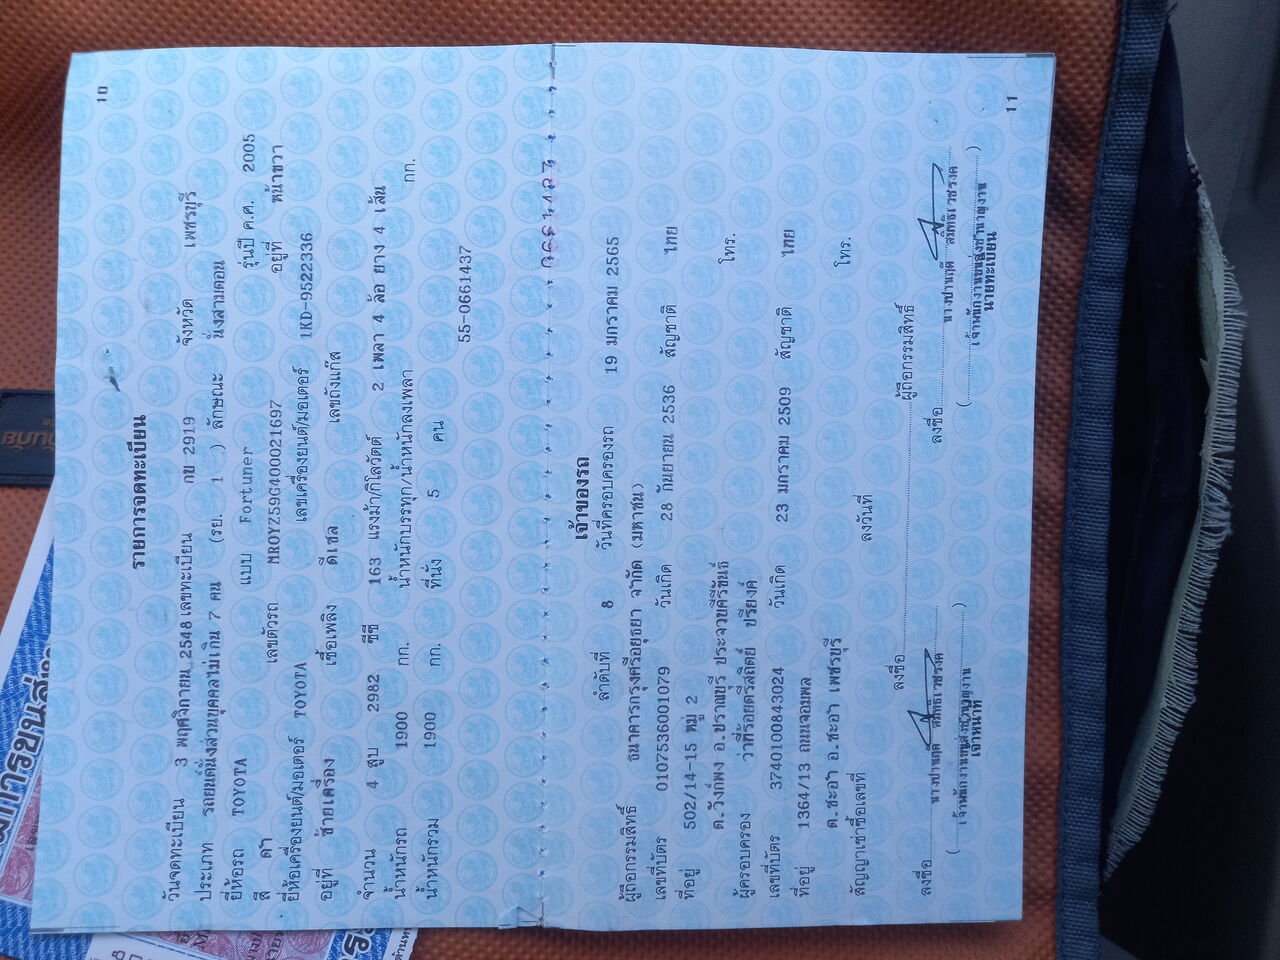 10
รายการจดทะเบียน
วันจดทะเบียน 3 พฤศจิกายน 2548 เลขทะเบียน กข 2919 จังหวัด เพชรบุรี
ประเภท รถยนต์นั่งส่วนบุคคลไม่เกิน 7 คน (รย. 1 ) ลักษณะ นั่งสามตอน
ยี่ห้อรถ TOYOTA แบบ Fortuner รุ่นปี ค.ศ. 2005
สี ดำ เลขตัวรถ MROYZ59G400021697 อยู่ที่ หน้าขวา
ยี่ห้อเครื่องยนต์/มอเตอร์ TOYOTA เลขเครื่องยนต์/มอเตอร์ 1KD-9522336
อยู่ที่ ซ้ายเครื่อง เชื้อเพลิง ดีเซล เลขถังแก๊ส
จำนวน 4 สูบ 2982 ซีซี 163 แรงม้า/กิโลวัตต์ 2 เพลา 4 ล้อ ยาง 4 เส้น
น้ำหนักรถ 1900 กก. น้ำหนักบรรทุก/น้ำหนักลงเพลา กก.
น้ำหนักรวม 1900 กก. ที่นั่ง 5 คน
55-0661437
เจ้าของรถ
ลำดับที่ 8 วันที่ครอบครองรถ 19 มกราคม 2565
ผู้ถือกรรมสิทธิ์ ธนาคารกรุงศรีอยุธยา จำกัด (มหาชน)
เลขที่บัตร 0107536001079 วันเกิด 28 กันยายน 2536 สัญชาติ ไทย
ที่อยู่ 502/14-15 หมู่ 2
ต.วังก์พง อ.ปราณบุรี ประจวบคีรีขันธ์ โทร.
ผู้ครอบครอง ว่าที่ร้อยตรีสถิตย์ ปรียงค์
เลขที่บัตร 3740100843024 วันเกิด 23 มกราคม 2509 สัญชาติ ไทย
ที่อยู่ 1364/13 ถนนจอมพล
ต.ชะอำ อ.ชะอำ เพชรบุรี โทร.
สัญญาเช่าซื้อเลขที่ ลงวันที่
ลงชื่อ ผู้ถือกรรมสิทธิ์
ลงชื่อ ลงชื่อ
เจ้าหน้าที่ นายทะเบียน
11